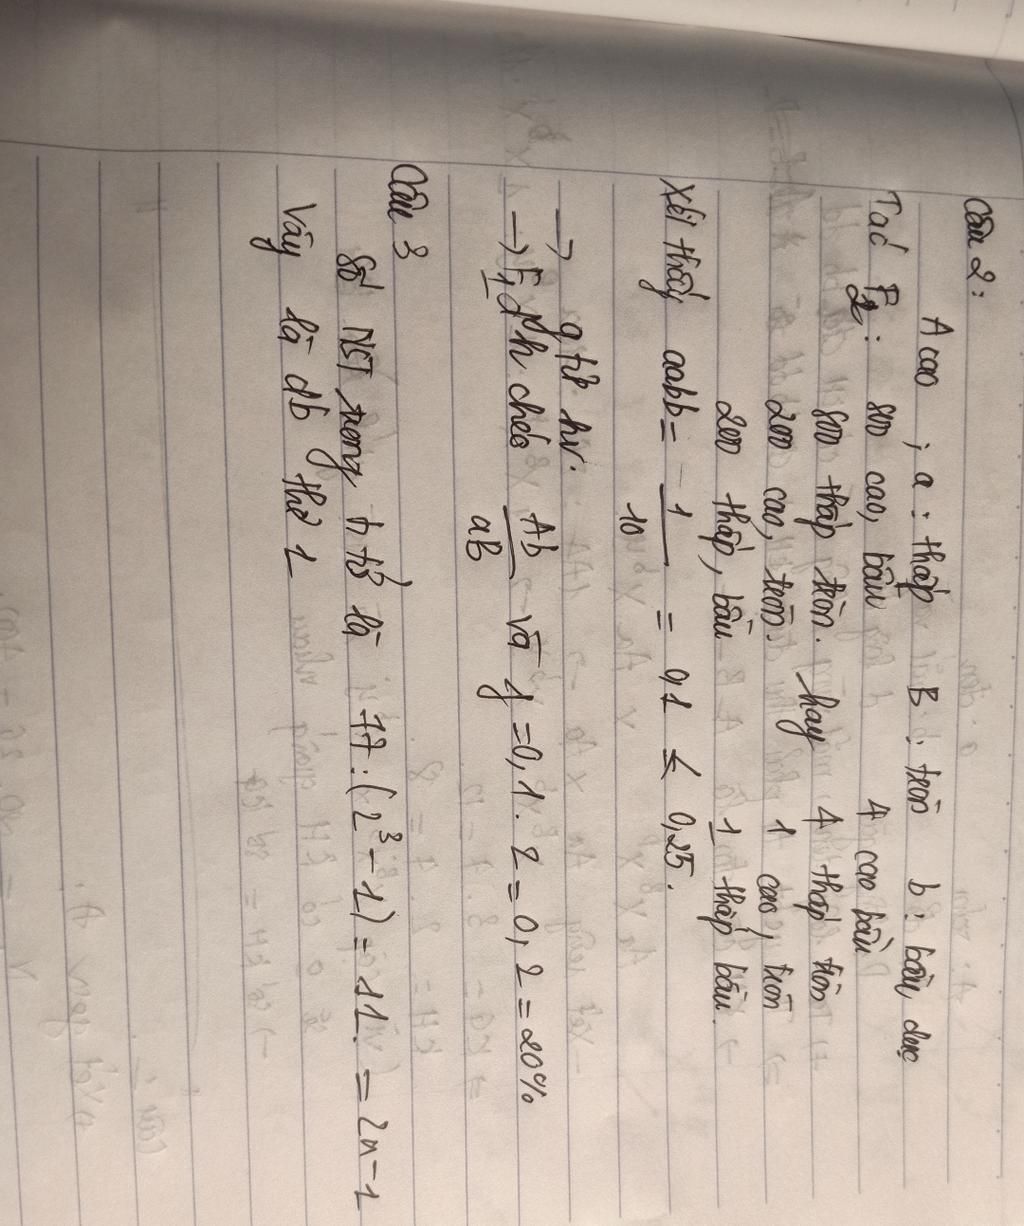 Câu 2:
A cao ; a : thấp B : tròn b : bầu dục
Tạc F2 : 800 cao, bầu 4 cao bầu
800 thấp tròn. hay 4 thấp tròn
200 cao, tròn. 1 cao, tròn
200 thấp, bầu 1 thấp bầu.
Xét thấy aabb = 1/10 = 0,1 ≤ 0,25.
→ gtử hv.
→ F1 dị h chéo Ab/aB và f = 0,1 . 2 = 0,2 = 20%
Câu 3
Số NST trong h tử là 77 : (2³ - 1) = 11. = 2n - 1
Vậy là đb thể 1